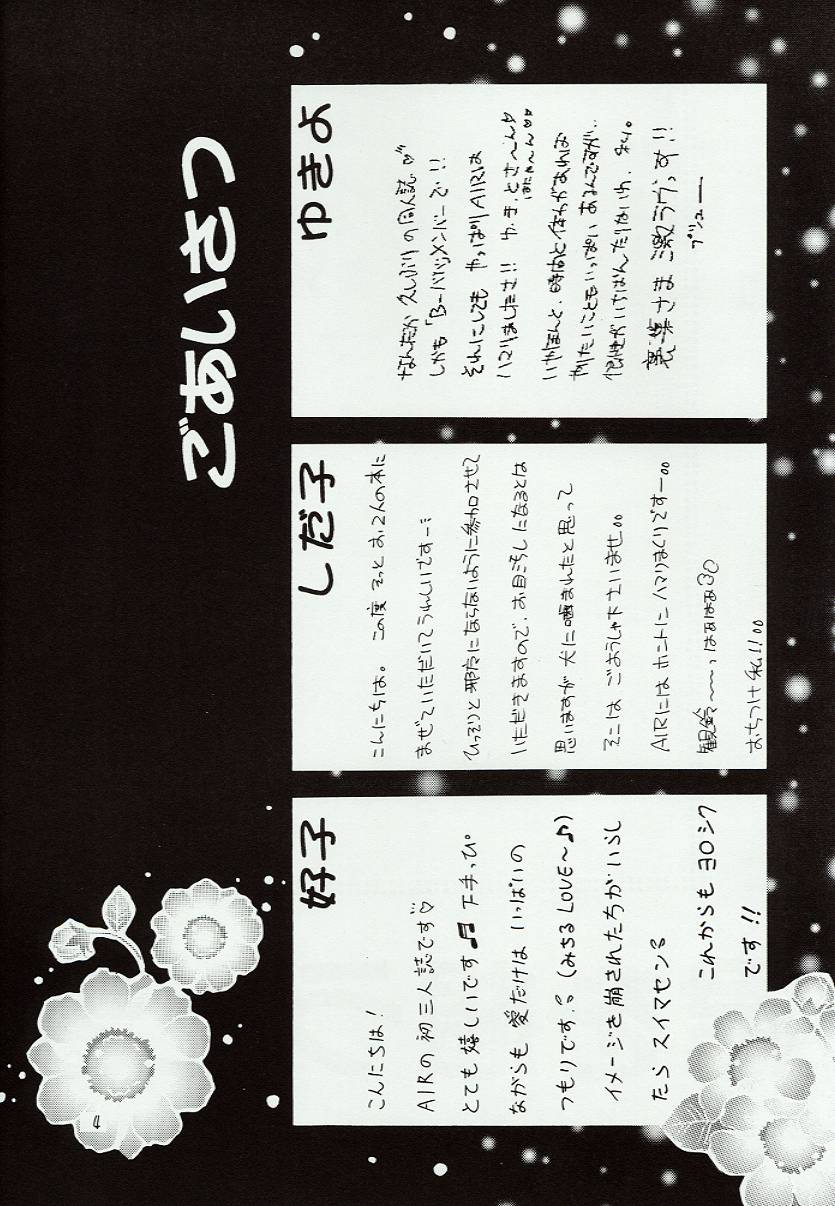 ごあいさつ
ゆきよ
なんだか久しぶりの同人誌♡
しかも「B-バリ」メンバーで!!
それにしてもやっぱりAIRは
いやほんと、時間と体力があれば
やりたいこともいっぱいあるんですが、
裏葉さま激ラヴっす!!
ブシューー
しだ子
こんにちは。この度そっとお2人の本に
まぜていただいてうれしいですー
ひっそりと邪魔にならないように参加させて
いただきますので、お目汚しになるとは
思いますが犬に噛まれたと思って
そこはごようしゃ下さいませ。。
AIRにはホントにハマリまくりですー。。
観鈴~~っはぁはぁ
おちつけ私!!。。
好子
こんにちは!
AIRの初三人誌です♡
とても嬉しいです♬ 下手っぴ
ながらも愛だけはいっぱいの
つもりです。(みちるLOVE~♪)
イメージを崩されたちがいらし
たらスイマセン
これからもヨロシク
です!!
4